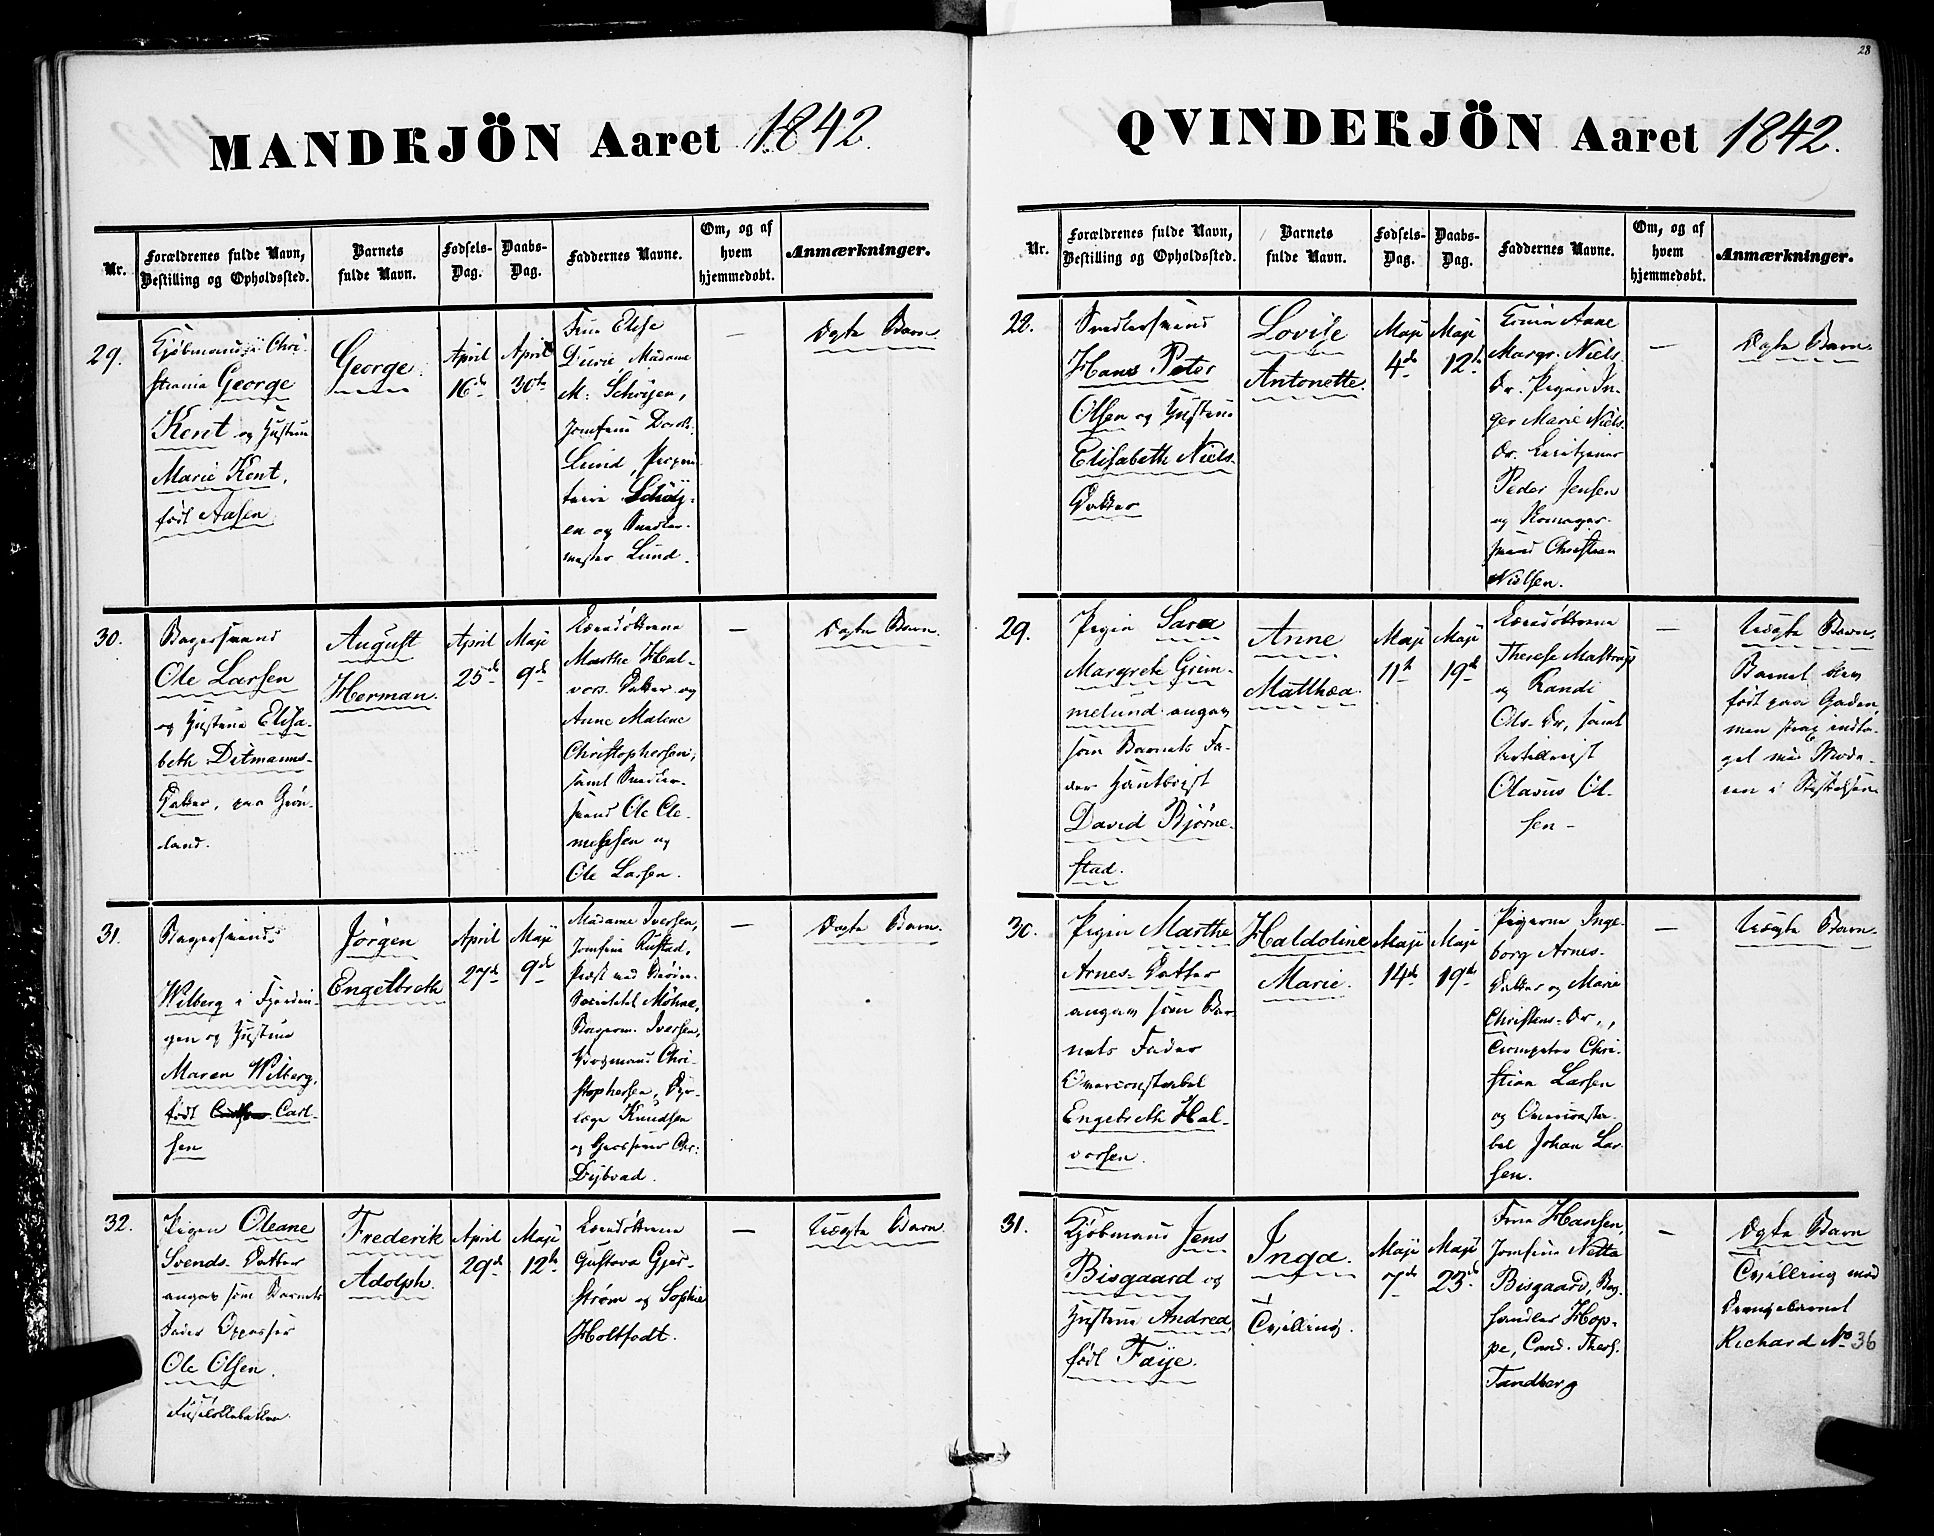 28
MANDKJÖN Aaret 1842.
Nr.
Forældrenes fulde Navn,
Bestilling og Opholdssted.
Barnets
fulde Navn.
Fødsels-
Dag.
Daabs-
Dag.
Faddernes Navne.
Om, og af
hvem
hjemmedøbt.
Anmærkninger.
29.
Kjøbmand i Chri-
stiania George
Kent og Hustrue
Marie Kent,
født Aasen.
George.
April
16de
April
30te
Frue Elise
Durie, Madame
M. Schøyen,
Jomfrue Doroth.
Lund, Propri-
tair Schöÿ-
en og Snedker-
mester Lund.
—
Ægte Barn.
30.
Bagersvend
Ole Larsen
og Hustrue Elisa-
beth Ditmanns-
Datter, paa Grøn-
land.
August
Herman.
April
25de
Maji
9de
Marthe Hal-
vors. Datter og
Anne Malene
Christophersen,
samt Snedker-
svend Ole Cle-
metsen og
Ole Larsen.
—
Ægte Barn.
31.
Bagersvend
Wilberg i Fjerdin-
gen og Hustrue
Maren Wilberg,
født Carl-
sen
Jørgen
Engelbreth
April
27de
Maji
9de
Madame Iversen,
Jomfrue Rustad,
Præst ved Brødre-
Societetet Møhne,
Bagerm. Iversen,
Chri-
stophersen, Dyr-
læge Knudsen
og Chr:
Dybvad.
—
Ægte Barn.
32.
Pigen Oleane
Svends-Datter
angav som Barnets
Fader Oppasser
Ole Olsen.
Frederik
Adolph.
April
29de
Maji
12te
Gustava Gjer-
strøm og Sophie
Holtfodt.
—
Uægte Barn.
QVINDERKJÖN Aaret 1842.
Nr.
Forældrenes fulde Navn,
Bestilling og Opholdssted.
Barnets
fulde Navn.
Fødsels-
Dag.
Daabs-
Dag.
Faddernes Navne.
Om, og af
hvem
hjemmedøbt.
Anmærkninger.
28.
Snedkersvend
Hans Peter
Olsen og Hustrue
Elisabeth Niels-
Datter
Lovise
Antonette.
Maji
4de
Maji
12te
Anne
Margr. Niels.
Dr. Pigen In-
ger Marie Niels.
Dr.
Peder Jensen
og Skomager-
svend Christian
Nielsen.
—
Ægte Barn.
29.
Pigen Sara
Margrete Grim-
melund angav
som Barnets Fa-
der Hautboist
David Bjørne-
stad.
Anne
Matthea.
Maji
11te
Maji
19de
Therese Mastrup
og Randi
Ols. Dr, samt
Artillerist
Olavus Ol-
sen -
—
Uægte Barn.
Barnet blev
født paa Gaden,
men strax indta-
get med Mode-
ren i Stiftelsen.
30.
Pigen Marthe
Arnes-Datter
angav som Bar-
nets Fader
Overconstabel
Engebreth Hal-
vorsen.
Haldoline
Marie.
Maji
14de
Maji
19de
Pigerne Inge-
borg Arnes-
Datter og Marie
Christens-Dr.,
Trompeter Chri-
stian Larsen
og Overconsta-
bel Johan Lar-
sen.
—
Uægte Barn.
31.
Kjøbmand Jens
Bisgaard og
Hustrue Andrea
født Faÿe.
Inga.
Tvilling.
Maji
7de
Maji
23de
Frue Hansen,
Jomfrue Netta
Bisgaard, Bog-
handler Hop-
pe, Cand. Theol.
Tandberg
—
Ægte Barn
Tvilling med
Drengebarnet
Richard No 36